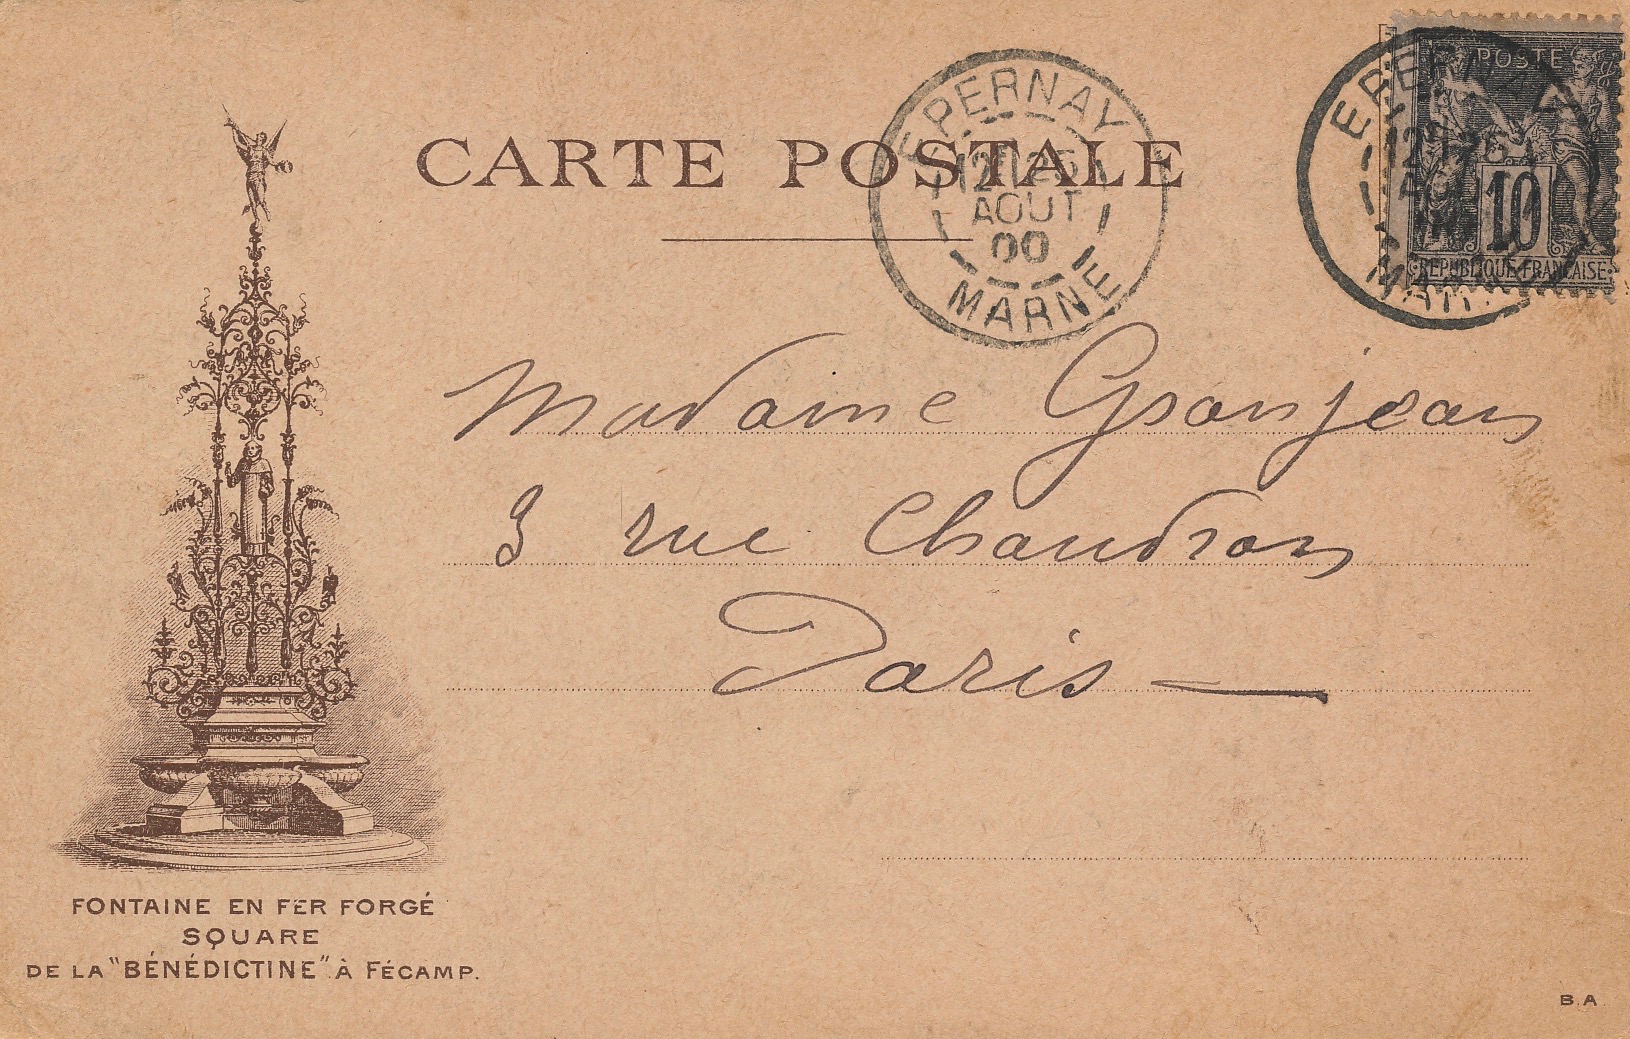 CARTE POSTALE
EPERNAY
AOUT
00
MARNE
EPERNAY
POSTE
10
REPUBLIQUE FRANCAISE
Madame Granjean
3 rue Chaudron
Paris —
FONTAINE EN FER FORGÉ
SQUARE
DE LA "BÉNÉDICTINE" À FÉCAMP.
B.A